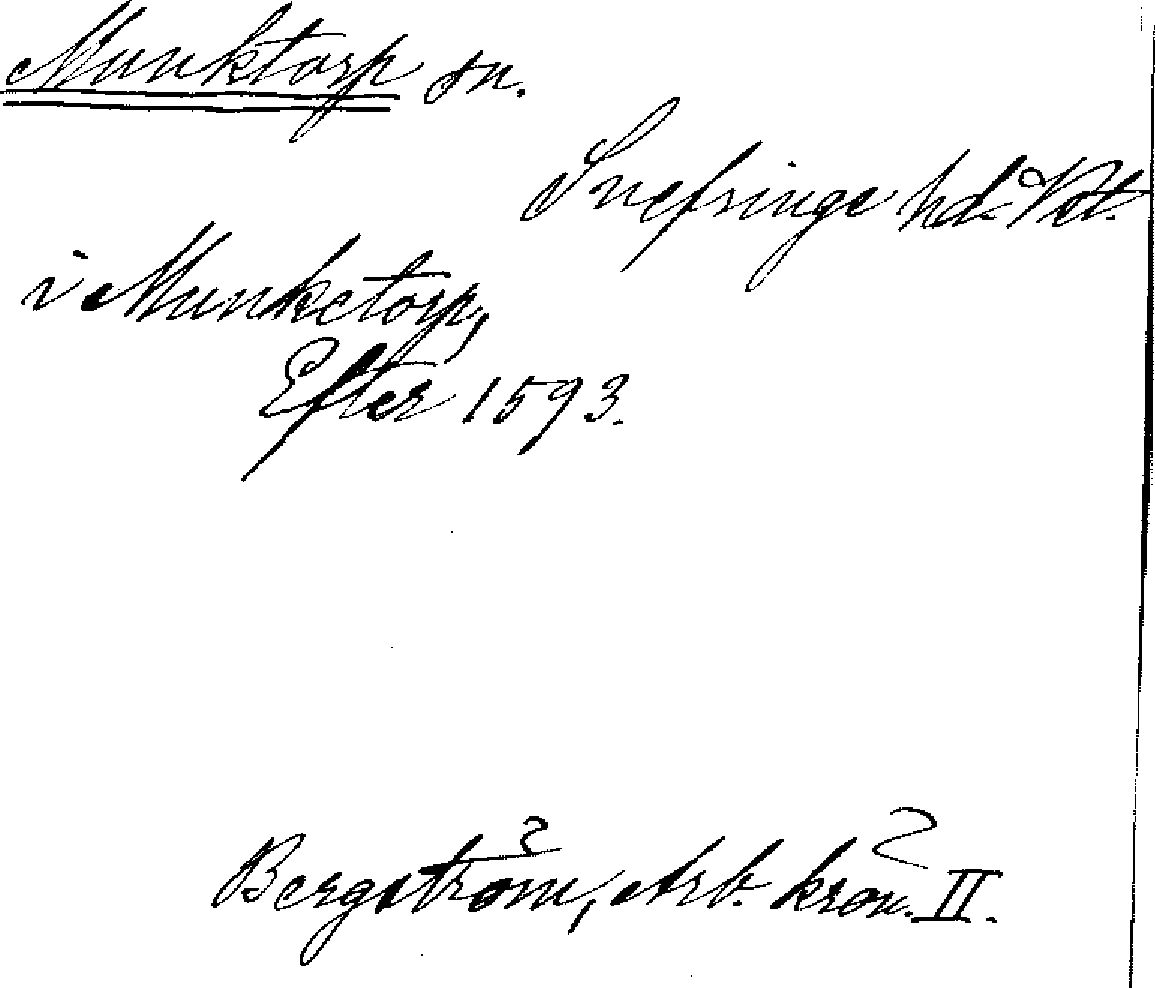 Munktorp sn.
Snefringe hd. Vstml.
i Munkctorp,
Efter 1593.
Bergström, Arb. krön. II.